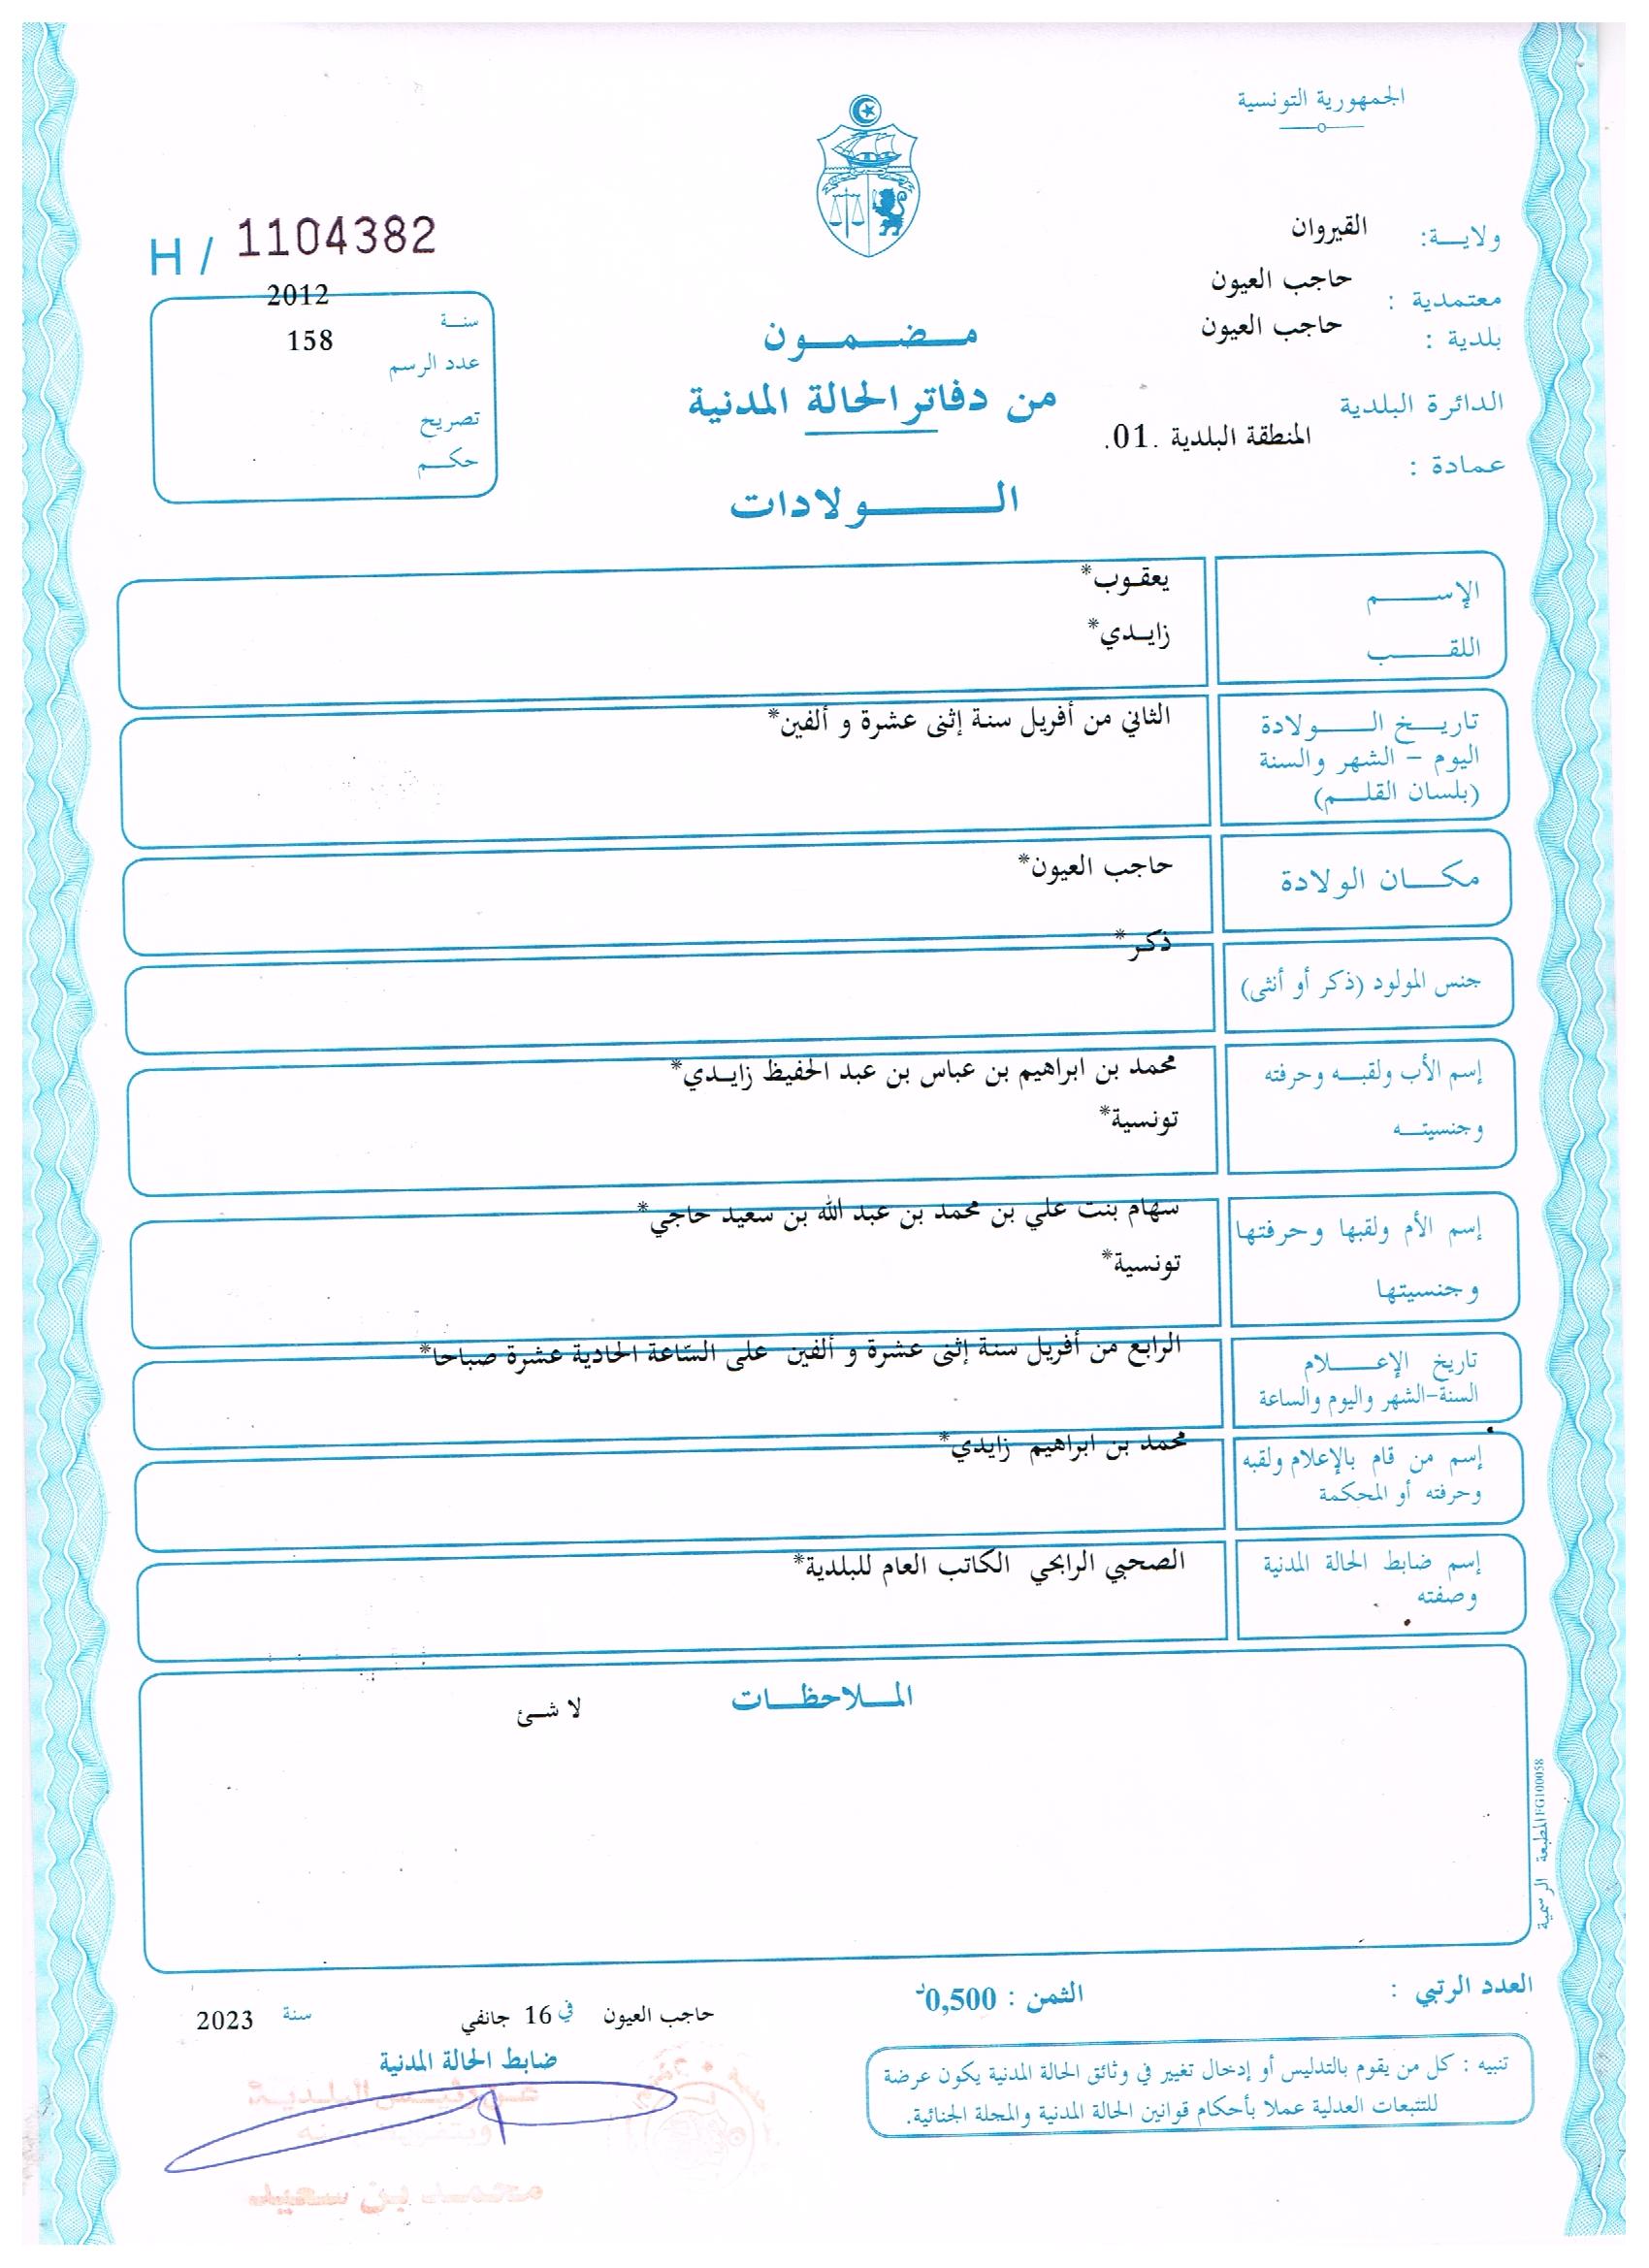 الجمهورية التونسية
ولايـــة: القيروان
معتمدية : حاجب العيون
بلدية : حاجب العيون
الدائرة البلدية
المنطقة البلدية .01.
عمادة :
H / 1104382
سنــة 2012
عدد الرسم 158
تصريح
حكــم
مــضــمــون
من دفاتر الحالة المدنية
الـــــولادات
الإســــم يعقـوب*
اللقــــب زايـدي*
تاريــخ الــــولادة الثاني من أفريل سنة إثنى عشرة و ألفين*
اليوم – الشهر والسنة
(بلسان القلــم)
مكــــان الولادة حاجب العيون*
جنس المولود (ذكر أو أنثى) ذكر*
إسم الأب ولقبــه وحرفته محمد بن ابراهيم بن عباس بن عبد الحفيظ زايـدي*
وجنسيتــه تونسية*
إسم الأم ولقبها وحرفتها سهام بنت علي بن محمد بن عبد الله بن سعيد حاجي*
وجنسيتها تونسية*
تاريخ الإعــــلام الرابع من أفريل سنة إثنى عشرة و ألفين على السّاعة الحادية عشرة صباحا*
السنة-الشهر واليوم والساعة
إسم من قام بالإعلام ولقبه محمد بن ابراهيم زايدي*
وحرفته أو المحكمة
إسم ضابط الحالة المدنية الصحبي الرابحي الكاتب العام للبلدية*
وصفته
المــلاحظــات
لا شـئ
المطبعة الرسمية FG100058
العدد الرتبي :
الثمن : 0,500د
حاجب العيون في 16 جانفي سنة 2023
ضابط الحالة المدنية
محمد بن سعيد
تنبيه : كل من يقوم بالتدليس أو إدخال تغيير في وثائق الحالة المدنية يكون عرضة
للتتبعات العدلية عملا بأحكام قوانين الحالة المدنية والمجلة الجنائية.